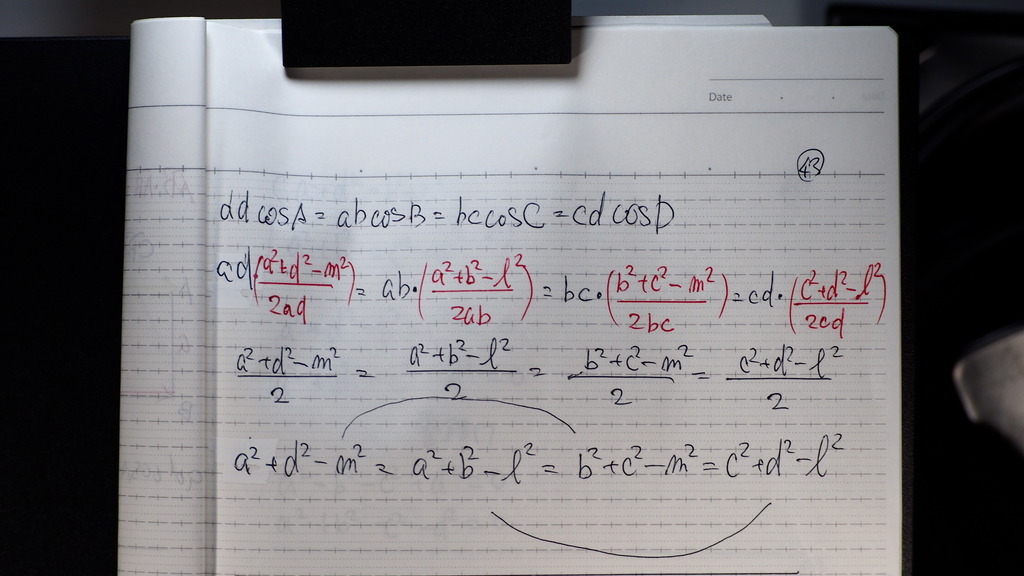 Date
43
ad cosA = ab cosB = bc cosC = cd cosD
ad(a²+d²-m²/2ad) = ab·(a²+b²-l²/2ab) = bc·(b²+c²-m²/2bc) = cd·(c²+d²-l²/2cd)
a²+d²-m²/2 = a²+b²-l²/2 = b²+c²-m²/2 = c²+d²-l²/2
a²+d²-m² = a²+b²-l² = b²+c²-m² = c²+d²-l²